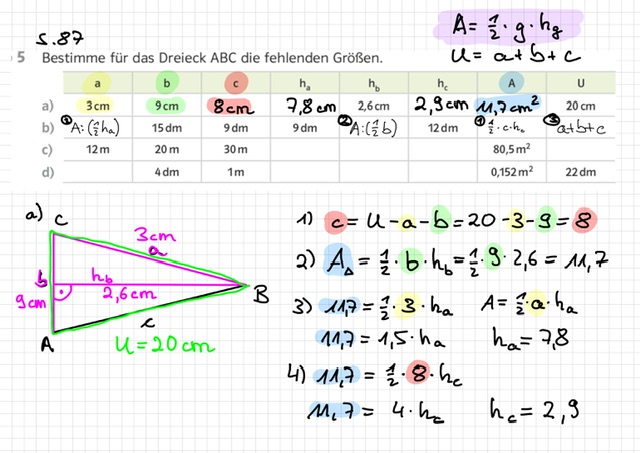 S. 87
A = 1/2 · g · h_g
U = a + b + c
5 Bestimme für das Dreieck ABC die fehlenden Größen.
a b c h_a h_b h_c A U
a) 3 cm 9 cm 8 cm 7,8 cm 2,6 cm 2,9 cm 11,7 cm² 20 cm
b) ③ A:(1/2 h_a) 15 dm 9 dm 9 dm ② A:(1/2 b) 12 dm ① 1/2 · c · h_c ③ a+b+c
c) 12 m 20 m 30 m 80,5 m²
d) 4 dm 1 m 0,152 m² 22 dm
a)
C
3cm
a
b
h_b
9cm
2,6cm
B
c
A
U = 20 cm
1) c = U - a - b = 20 - 3 - 9 = 8
2) A_Δ = 1/2 · b · h_b = 1/2 · 9 · 2,6 = 11,7
3) 11,7 = 1/2 · 3 · h_a A = 1/2 · a · h_a
11,7 = 1,5 · h_a h_a = 7,8
4) 11,7 = 1/2 · 8 · h_c
11,7 = 4 · h_c h_c = 2,9